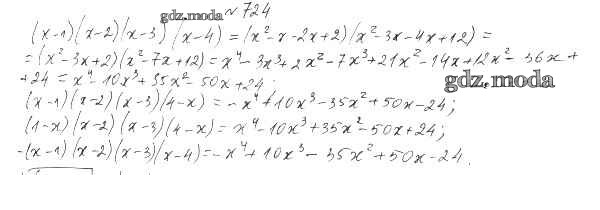 gdz.moda № 724
(x-1)(x-2)(x-3)(x-4) = (x²-x-2x+2)(x²-3x-4x+12) =
= (x²-3x+2)(x²-7x+12) = x⁴-3x³+2x²-7x³+21x²-14x+12x²-36x+
+24 = x⁴-10x³+35x²-50x+24.
gdz.moda
(x-1)(x-2)(x-3)(4-x) = -x⁴+10x³-35x²+50x-24;
(1-x)(x-2)(x-3)(4-x) = x⁴-10x³+35x²-50x+24;
-(x-1)(x-2)(x-3)(x-4) = -x⁴+10x³-35x²+50x-24.